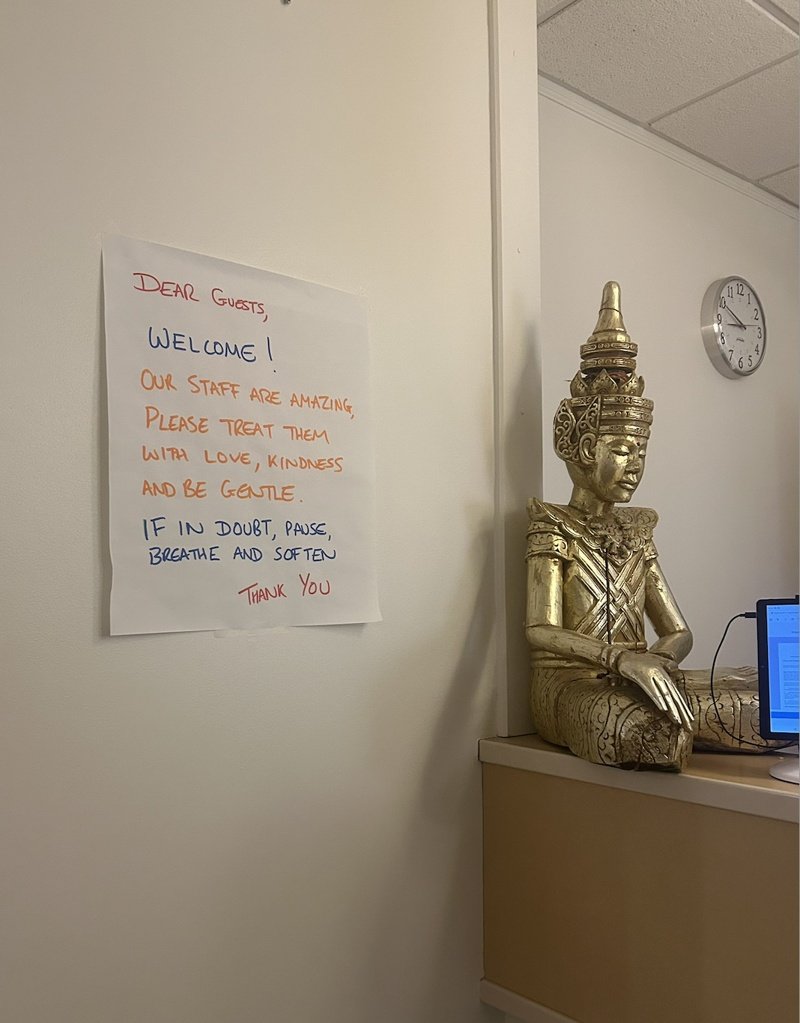 DEAR GUESTS,
WELCOME!
OUR STAFF ARE AMAZING,
PLEASE TREAT THEM
WITH LOVE, KINDNESS
AND BE GENTLE.
IF IN DOUBT, PAUSE,
BREATHE AND SOFTEN
THANK YOU
12
1
2
3
4
5
6
7
8
9
10
11